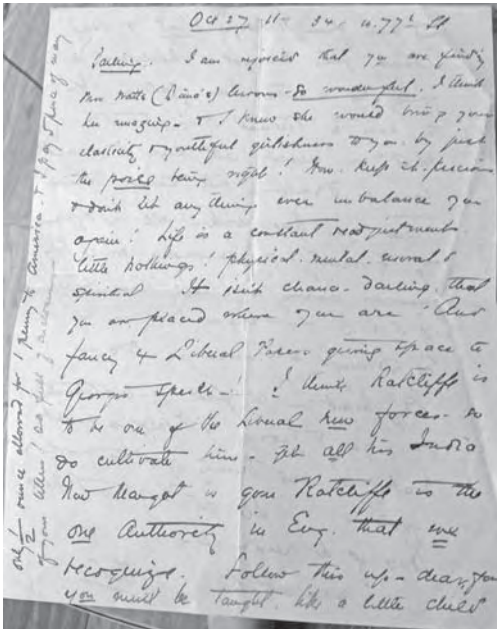 Oct 27 11 - 34. W. 77th St
Darling. I am rejoiced that you are finding
Mrs Watts ( ) lessons - so wonderful. I think
her amazing - & I know she would bring you
elasticity & youthful girlishness to you by just
the poise being right! Now. Keep it. precious
& don't let anything ever unbalance you
again! Life is a constant readjustment
little nothings! physical. mental. moral &
spiritual It isn't chance - darling. that
you are placed where you are! And
fancy 4 Liberal Papers giving space to
George's speech -! I think Ratcliffe is
to be one of the Liberal new forces - so
do cultivate him - all his India
Now is gone Ratcliffe is the
one Authority in Eng. that we
recognize. Follow this up - dear. you
you must be taught. like a little child
only 1/2 ounce allowed for 1 penny to America. & I pay 4 pence of my
of your letters!